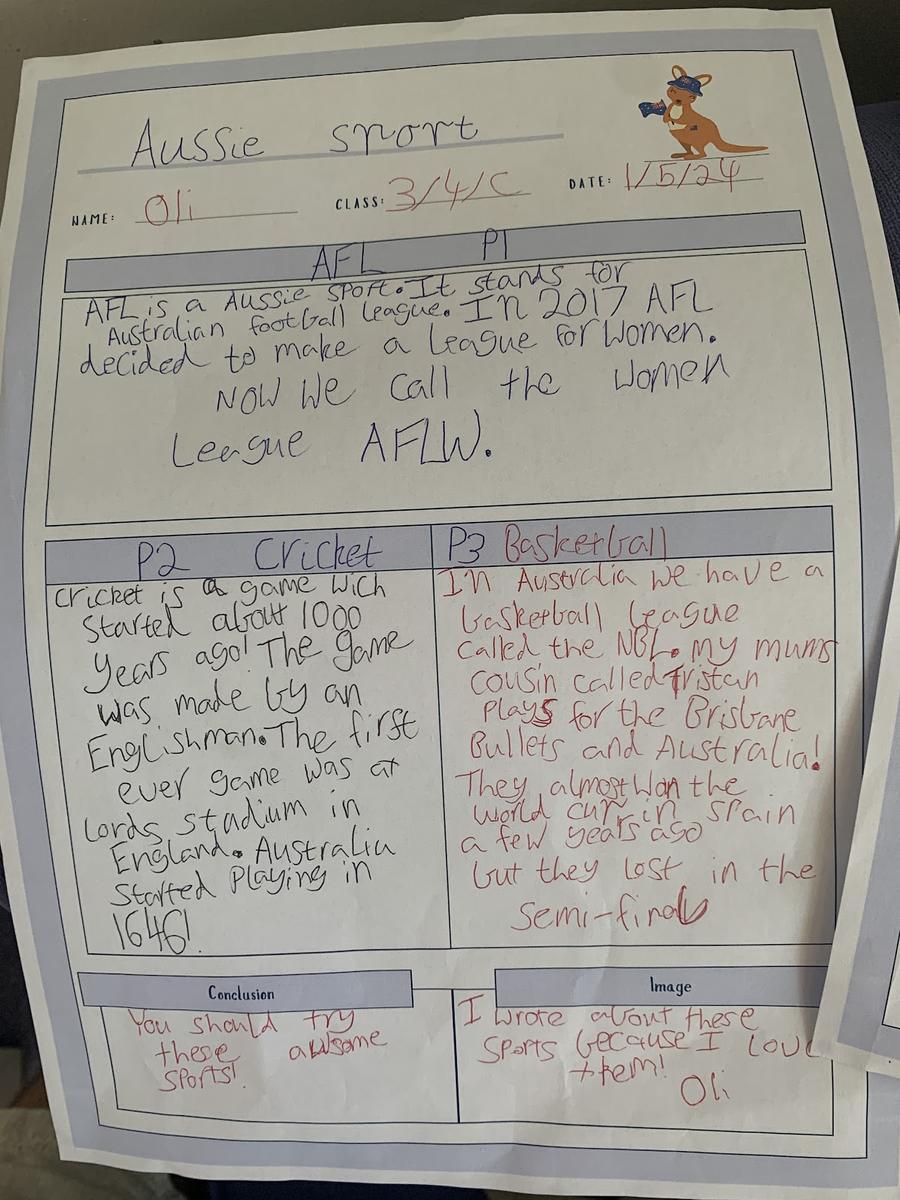 Aussie sport
NAME: Oli CLASS: 3/4/C DATE: 1/5/24
AFL P1
AFL is a Aussie sport. It stands for
Australian football league. In 2017 AFL
decided to make a league for women.
NOW We call the women
League AFLW.
P2 Cricket
cricket is a game wich
started about 1000
years ago! The game
was made by an
Englishman. The first
ever game was at
Lords stadium in
England. Australia
started Playing in
1646!
P3 Basketball
In Australia we have a
basketball league
called the NBL. my mums
cousin called Tristan
plays for the Brisbane
Bullets and Australia!
They almost won the
world cup in spain
a few years ago
but they lost in the
semi-finals
Conclusion
You should try
these awsome
sports!
Image
I wrote about these
sports because I love
them!
Oli